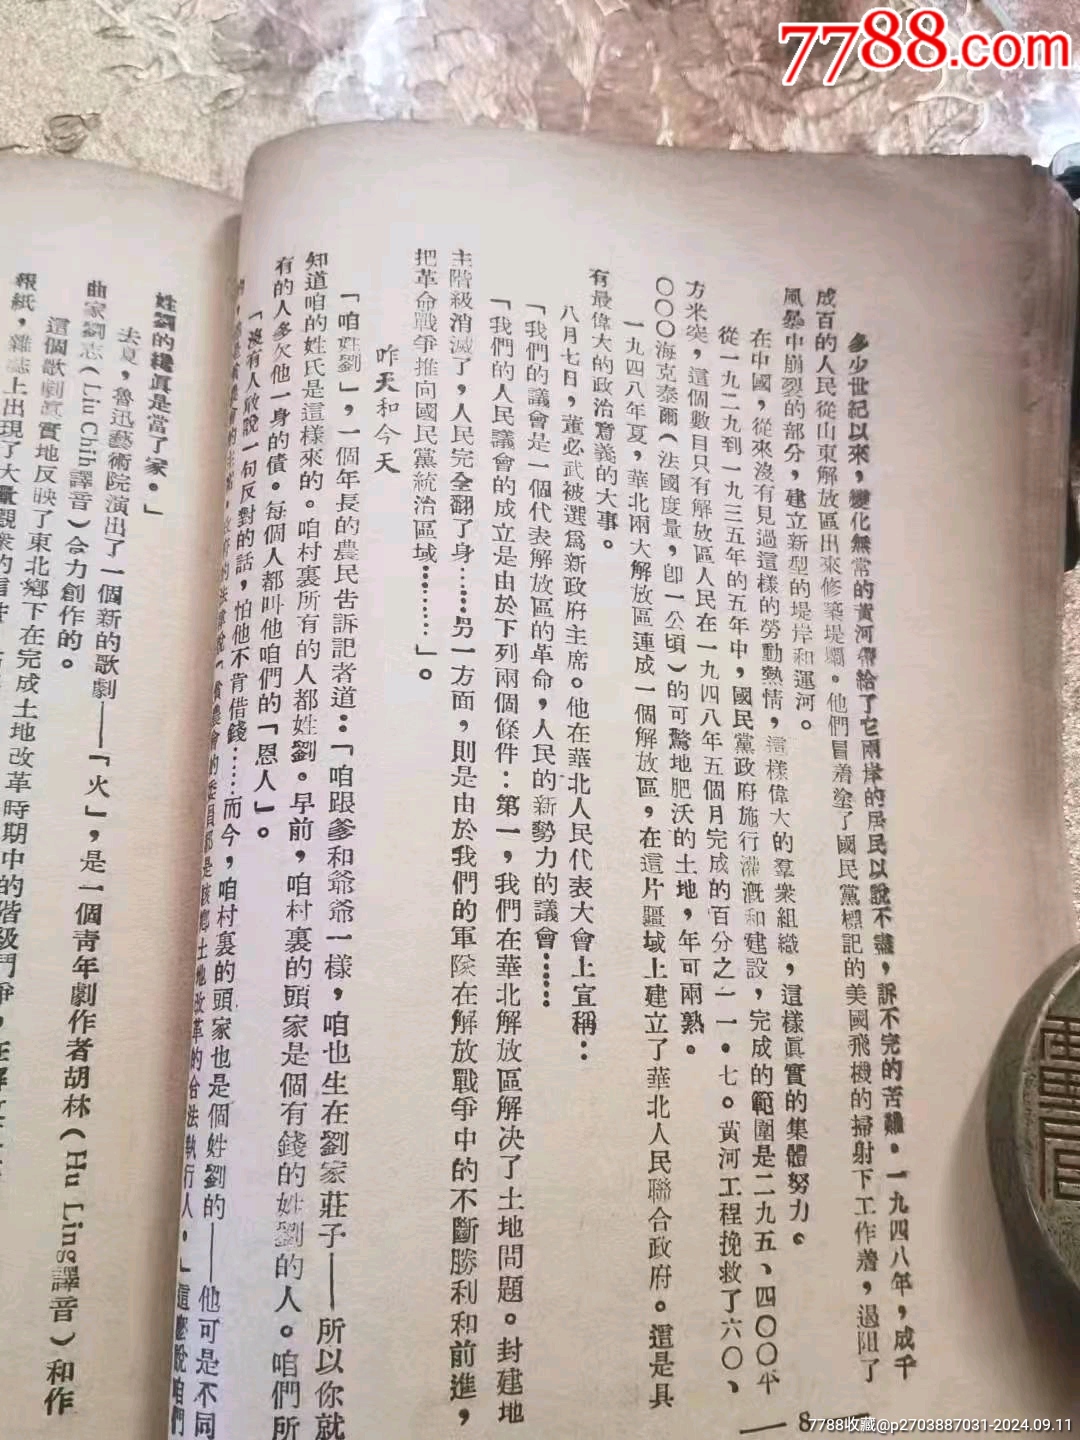 7788.com
多少世紀以來，變化無常的黃河帶給了它兩岸的居民以說不盡，訴不完的苦難。一九四八年，成千
成百的人民從山東解放區出來修築堤壩。他們冒着塗了國民黨標記的美國飛機的掃射下工作着，遏阻了
風暴中崩裂的部分，建立新型的堤岸和運河。
在中國，從來沒有見過這樣的勞動熱情，這樣偉大的羣衆組織，這樣眞實的集體努力。
從一九二九到一九三五年的五年中，國民黨政府施行灌漑和建設，完成的範圍是二九五、四〇〇平
方米突，這個數目只有解放區人民在一九四八年五個月完成的百分之一一·七。黃河工程挽救了六〇、
〇〇〇海克泰爾（法國度量，卽一公頃）的可驚地肥沃的土地，年可兩熟。
一九四八年夏，華北兩大解放區連成一個解放區，在這片區域上建立了華北人民聯合政府。這是具
有最偉大的政治意義的大事。
八月七日，董必武被選爲新政府主席。他在華北人民代表大會上宣稱：
「我們的議會是一個代表解放區的革命，人民的新勢力的議會……
「我們的人民議會的成立是由於下列兩個條件：第一，我們在華北解放區解决了土地問題。封建地
主階級消滅了，人民完全翻了身……另一方面，則是由於我們的軍隊在解放戰爭中的不斷勝利和前進，
把革命戰爭推向國民黨統治區域………」。
昨天和今天
「咱姓劉」，一個年長的農民告訴記者道：「咱跟爹和爺爺一樣，咱也生在劉家莊子——所以你就
知道咱的姓氏是這樣來的。咱村裏所有的人都姓劉。早前，咱村裏的頭家是個有錢的姓劉的人。咱們所
有的人多欠他一身的債。每個人都叫他咱們的「恩人」。
「沒有人敢說一句反對的話，怕他不肯借錢……而今，咱村裏的頭家也是個姓劉的——他可是不同
農會的委員都是該鄉土地改革的合法執行人。」這麽說咱們
— 8 —
姓劉的纔眞是當了家。」
去夏，魯迅藝術院演出了一個新的歌劇——「火」，是一個靑年劇作者胡林（Hu Ling譯音）和作
曲家劉志（Liu Chih譯音）合力創作的。
這個歌劇眞實地反映了東北鄉下在完成土地改革時期中的階級鬥爭，在解放
報紙，雜誌上出現了大量觀衆的信
7788收藏@p2703887031-2024.09.11